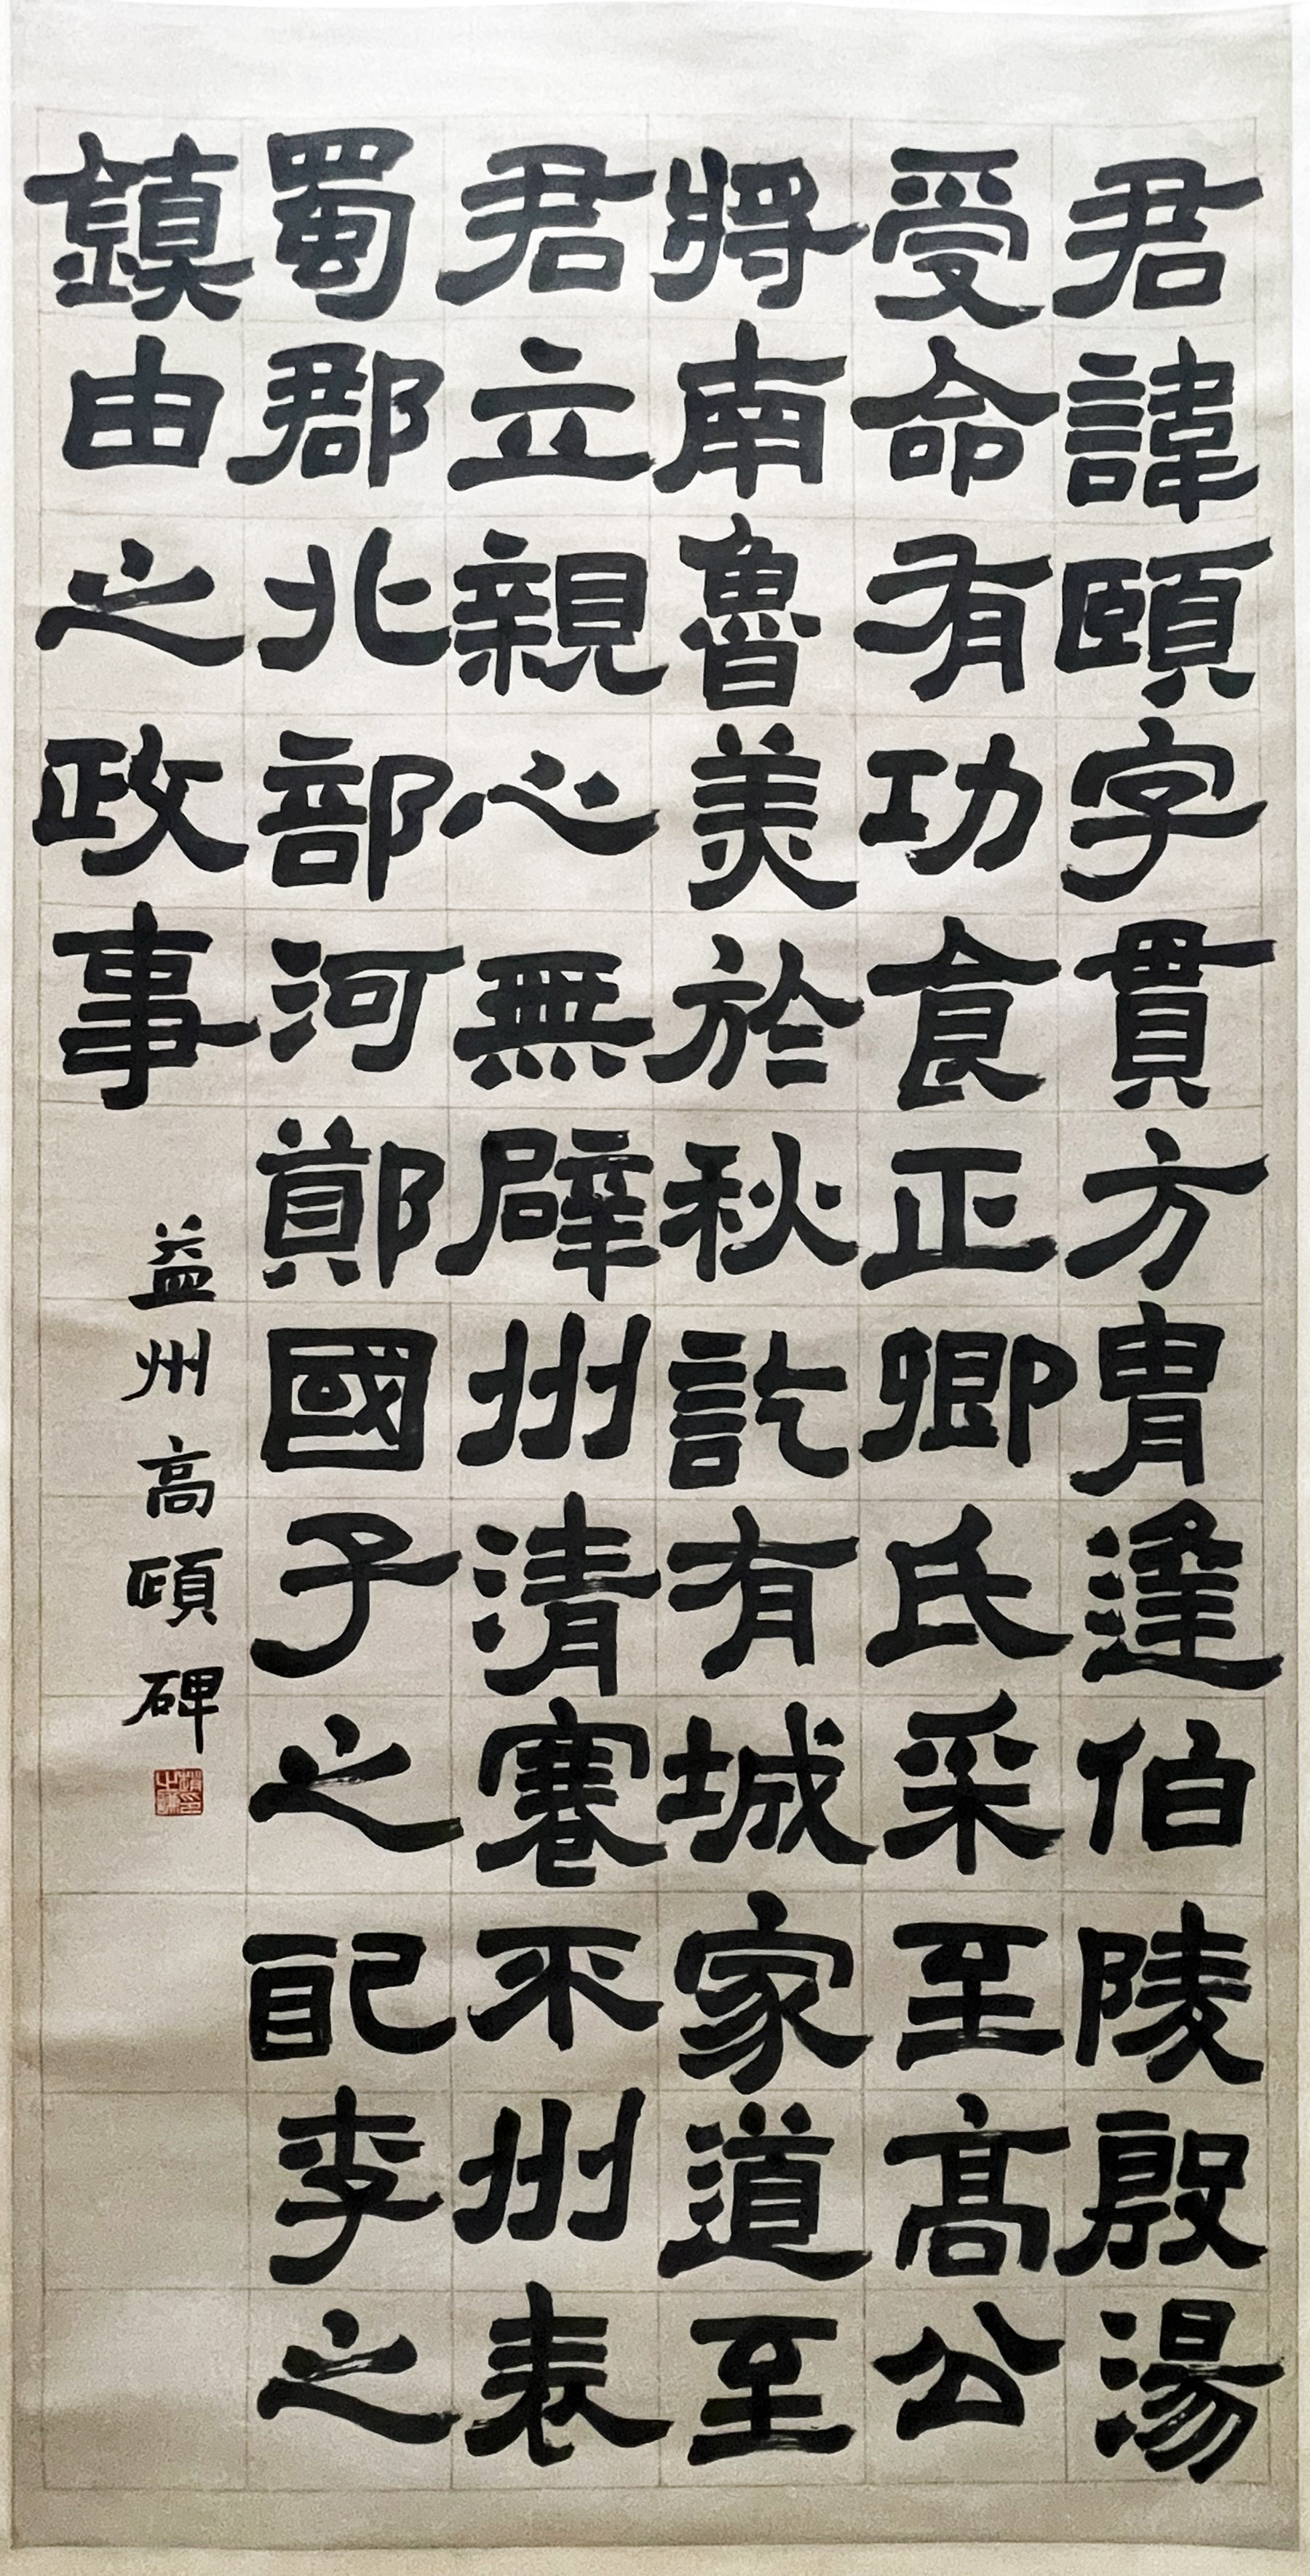 君諱頤字貫方冑逢伯陵殷湯
受命有功食正卿氏采至高公
將南魯美於秋訖有城家道至
君立親心無辟州清不州表
蜀郡北部河鄭國子之配李之
鎮由之政事
益州高頤碑
趙之謙印